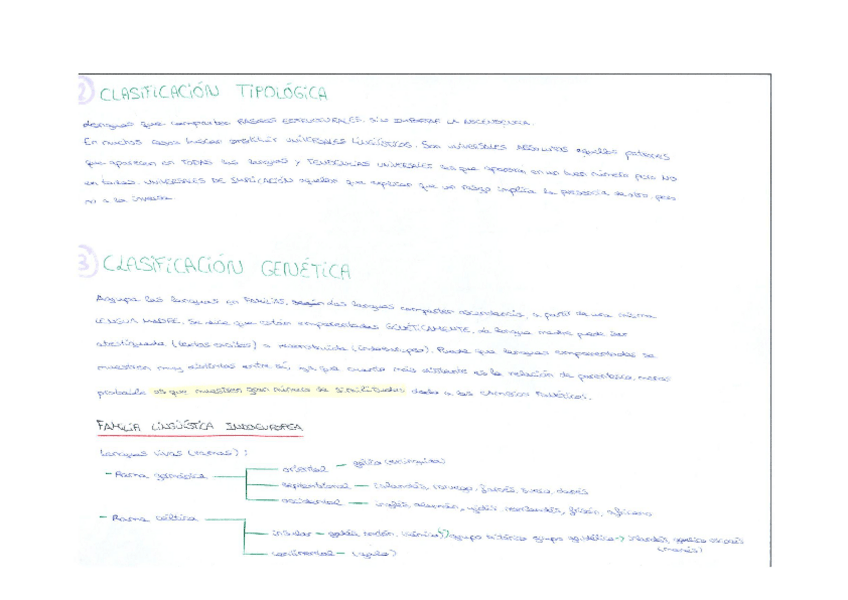 2 CLASIFICACIÓN TIPOLÓGICA
Lenguas que comparten RASGOS ESTRUCTURALES, SIN IMPORTAR LA ASCENDENCIA.
En muchos casos UNIVERSALES LINGÜÍSTICOS. Son UNIVERSALES ABSOLUTOS aquellos
que aparecen en TODAS las lenguas y TENDENCIAS UNIVERSALES las que aparecen en un buen número pero NO
en todas. UNIVERSALES DE IMPLICACIÓN aquellos que explican que un rasgo implica la presencia de otro, pero
no a la inversa.
3 CLASIFICACIÓN GENÉTICA
Agrupa las lenguas en FAMILIAS, según las lenguas comparten ascendencia, a partir de una misma
LENGUA MADRE. Se dice que están emparentadas GENÉTICAMENTE. La lengua madre puede ser
atestiguada (textos escritos) o reconstruida. Puede que lenguas emparentadas se
muestren muy distintas entre sí, ya que cuanto más distante es la relación de parentesco, menos
probable es que muestren gran número de similitudes dado a los CAMBIOS FONÉTICOS.
FAMILIA LINGÜÍSTICA INDOEUROPEA
Lenguas vivas (ramas):
- Rama germánica
oriental - gótico (extinguida)
septentrional - islandés, noruego, feroés, sueco, danés
occidental - inglés, alemán, yidis, neerlandés, frisón, africano
- Rama céltica
insular - galés, bretón, córnico grupo británico grupo → irlandés, gaélico escocés
(manés)
continental - (galo)